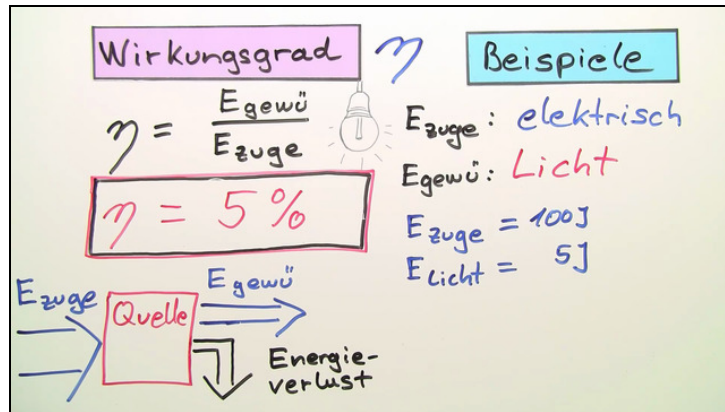 Wirkungsgrad η
Beispiele
η = Egewü / Ezuge
η = 5 %
Ezuge: elektrisch
Egewü: Licht
Ezuge = 100J
ELicht = 5J
Ezuge
Quelle
Egewü
Energie-
verlust